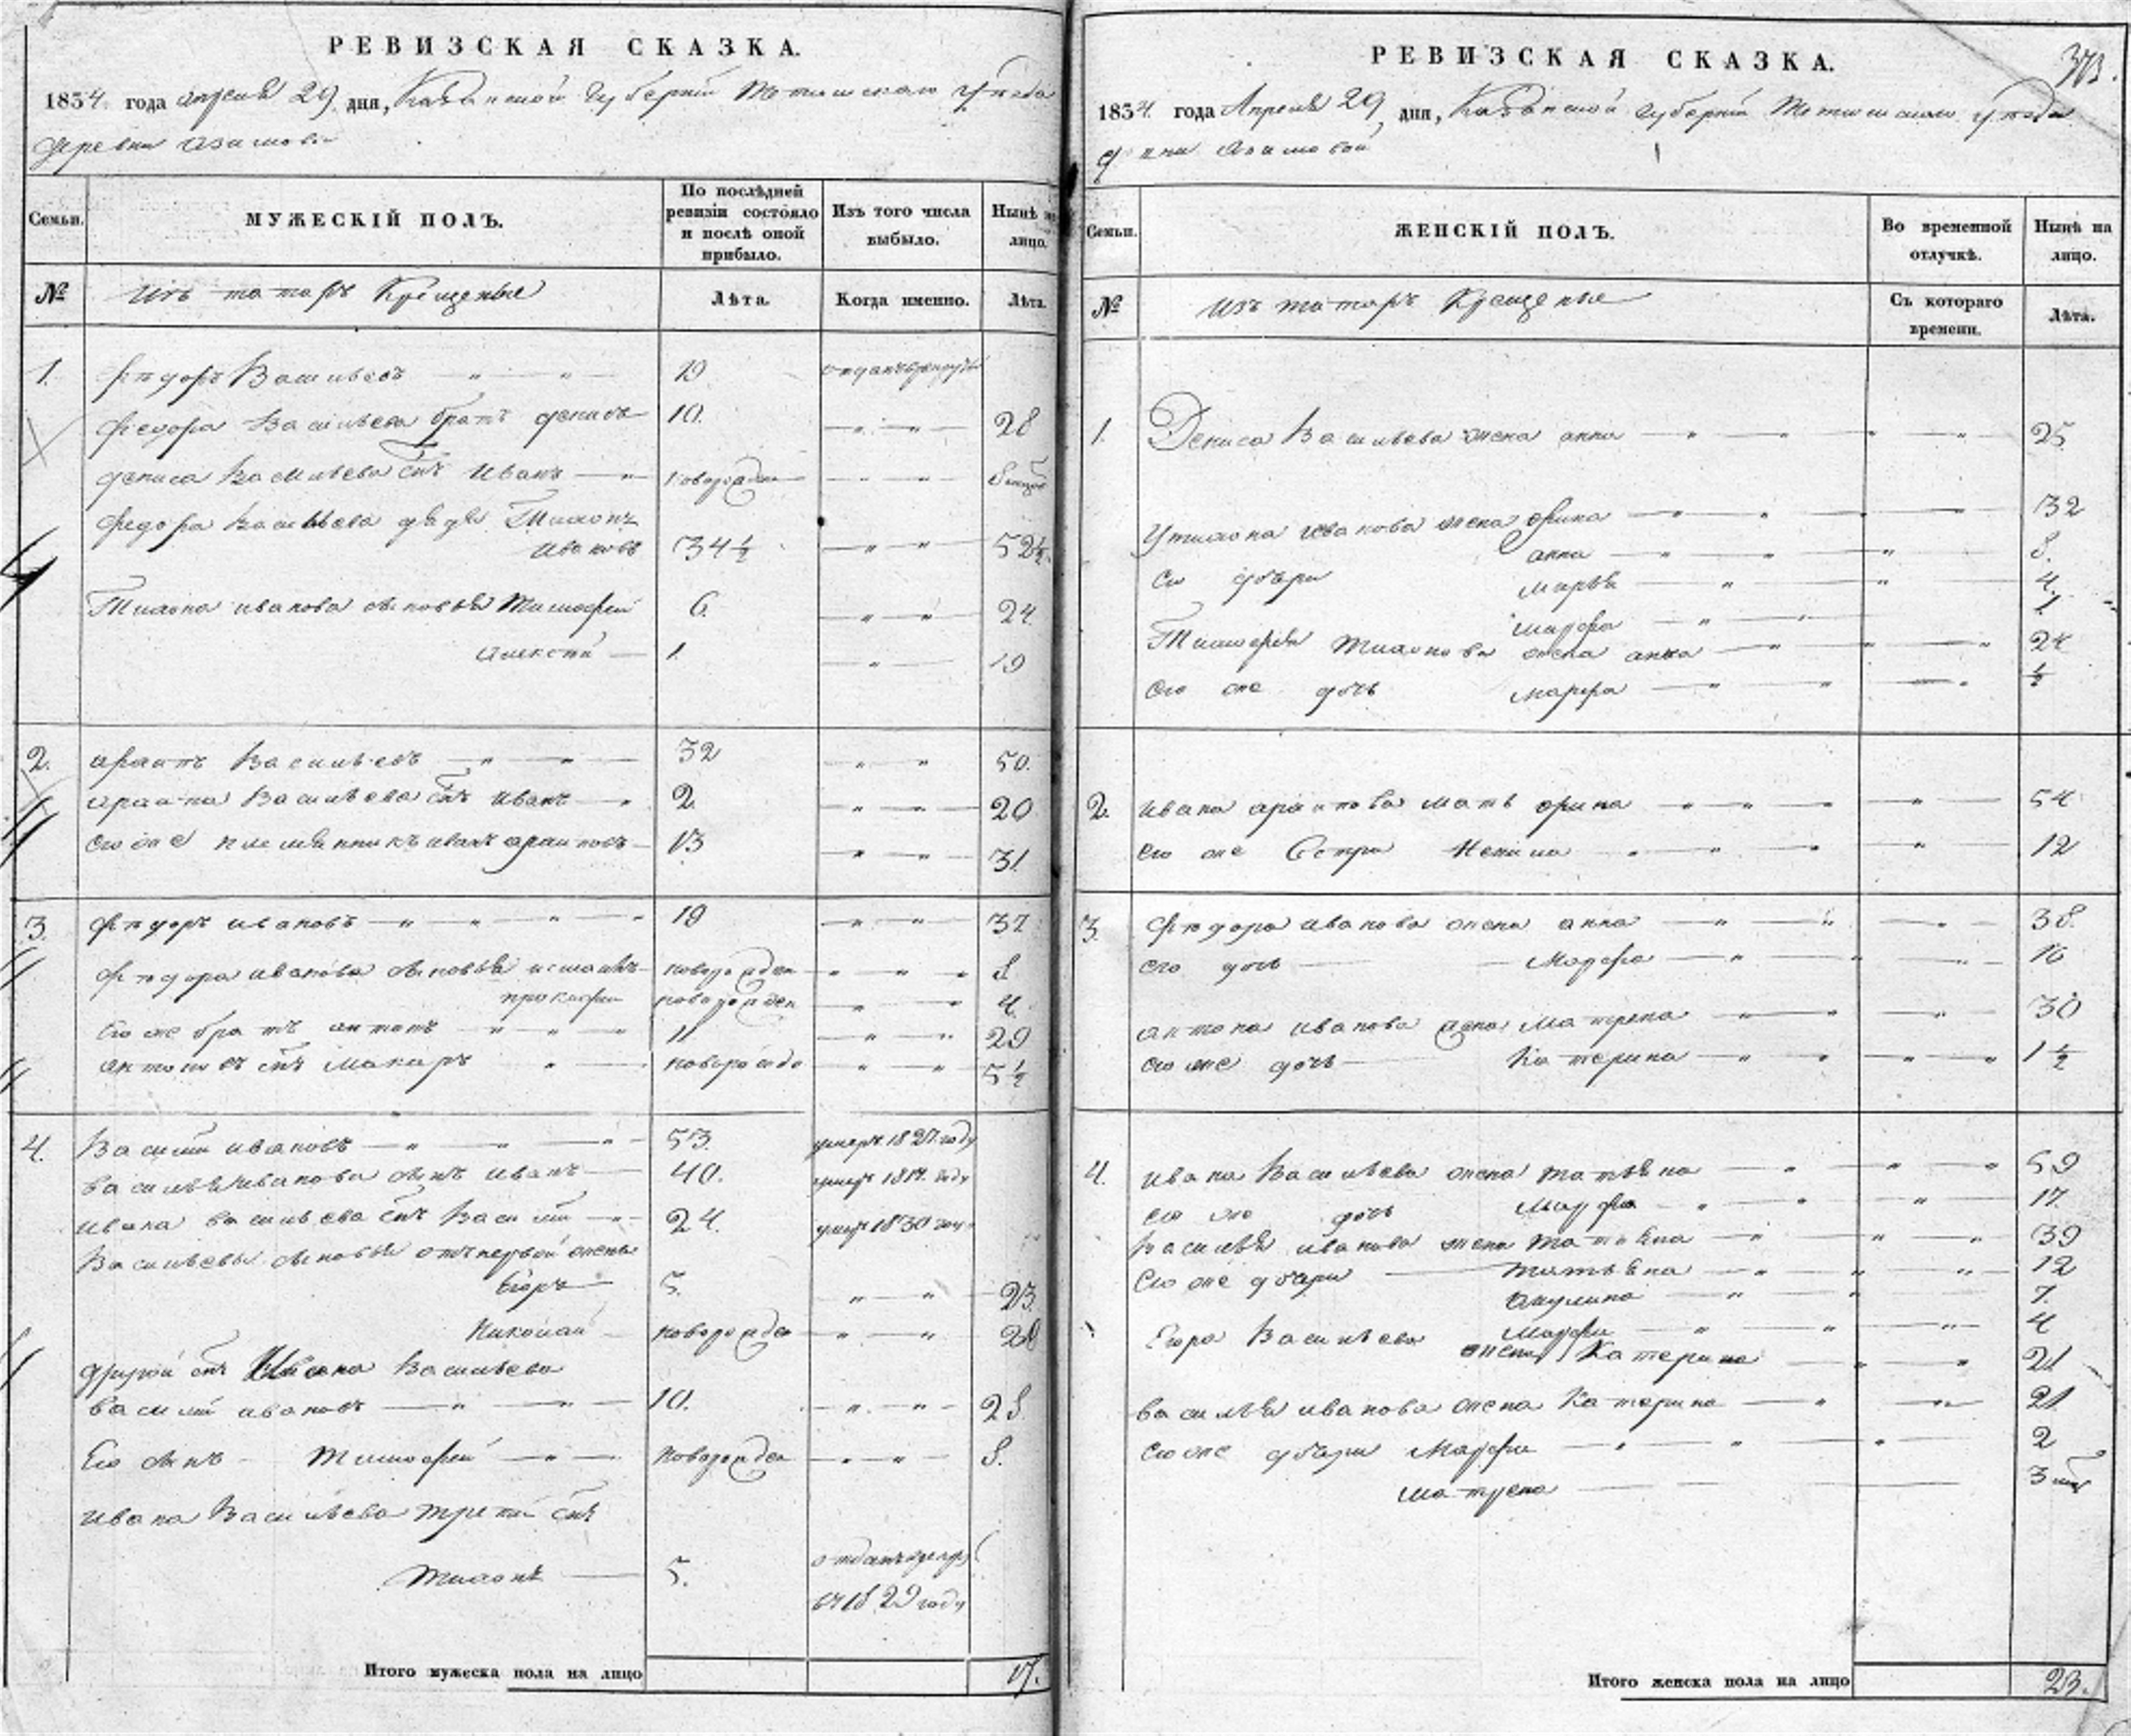 РЕВИЗСКАЯ СКАЗКА.
1834 года апреля 29 дня, Казанской губерніи Тетюшскаго уѣзда
деревни Азимовой
Семьи.
МУЖЕСКІЙ ПОЛЪ.
По послѣдней ревизіи состояло и послѣ оной прибыло.
Изъ того числа выбыло.
Нынѣ на лицо.
№
Изъ татаръ Крещеные
Лѣта.
Когда именно.
Лѣта.
1. Ѳедоръ Васильевъ 19
Федора Васильева братъ Денисъ 10. 28
Дениса Васильева сынъ Иванъ новорожден 8
Федора Васильева дядя Тихонъ
Ивановъ 34½ 52½
Тихона Иванова сыновья Тимофей 6. 24
Алексѣй 1 19
2. Васильевъ 32 50.
Васильева сынъ Иванъ 2 20
его же племянникъ Иванъ 13 31
3. Ѳедоръ Ивановъ 19 37
Ѳедора Иванова сыновья новорожден 8
Прокофій новорожден 4.
Его же братъ Антонъ 11 29
Антоновъ сынъ Макаръ новорожде 5½
4. Василій Ивановъ 53. умеръ 1827. году
Василья Иванова сынъ Иванъ 40. умеръ году
Ивана Васильева сынъ Василій 24. умеръ 1830 году
Васильевы сыновья отъ первой жены
Егоръ 5. 23.
Николай новорожден
другой сынъ Ивана Васильева
Василій Ивановъ 10. 28.
Его сынъ Тимофей новорожден 8.
Ивана Васильева третій сынъ
Тихонъ 5. отданъ
въ 1829 году
Итого мужеска пола на лицо 17.
РЕВИЗСКАЯ СКАЗКА.
373.
1834. года Апреля 29, дня, Казанской губерніи Тетюшскаго уѣзда
Азимовой
Семьи.
ЖЕНСКІЙ ПОЛЪ.
Во временной отлучкѣ.
Нынѣ на лицо.
№
Изъ татаръ Крещеные
Съ котораго времени.
Лѣта.
1. Дениса Васильева жена Анна 25
У Тихона Иванова жена Орина 32
Анна 8.
Его дочери Марья 4.
Марфа 1
Тимофея Тихонова жена Анна 24
Его же дочь Марфа ½
2. Ивана мать Орина 54
Его же Сестра 12
3. Ѳедора Иванова жена Анна 38.
Его дочь Марфа 16
Антона Иванова жена Матрена 30
Его же дочь Катерина 1½
4. Ивана Васильева жена Татьяна 59
Его же дочь Марфа 17.
Василья Иванова жена Татьяна 39
Его же дочери Татьяна 12
Акулина 7.
Марфа 4
Егора Васильева жена Катерина 21
Василья Иванова жена Катерина 21
Его же дочери Марфа 2
Матрена 3
Итого женска пола на лицо 23.